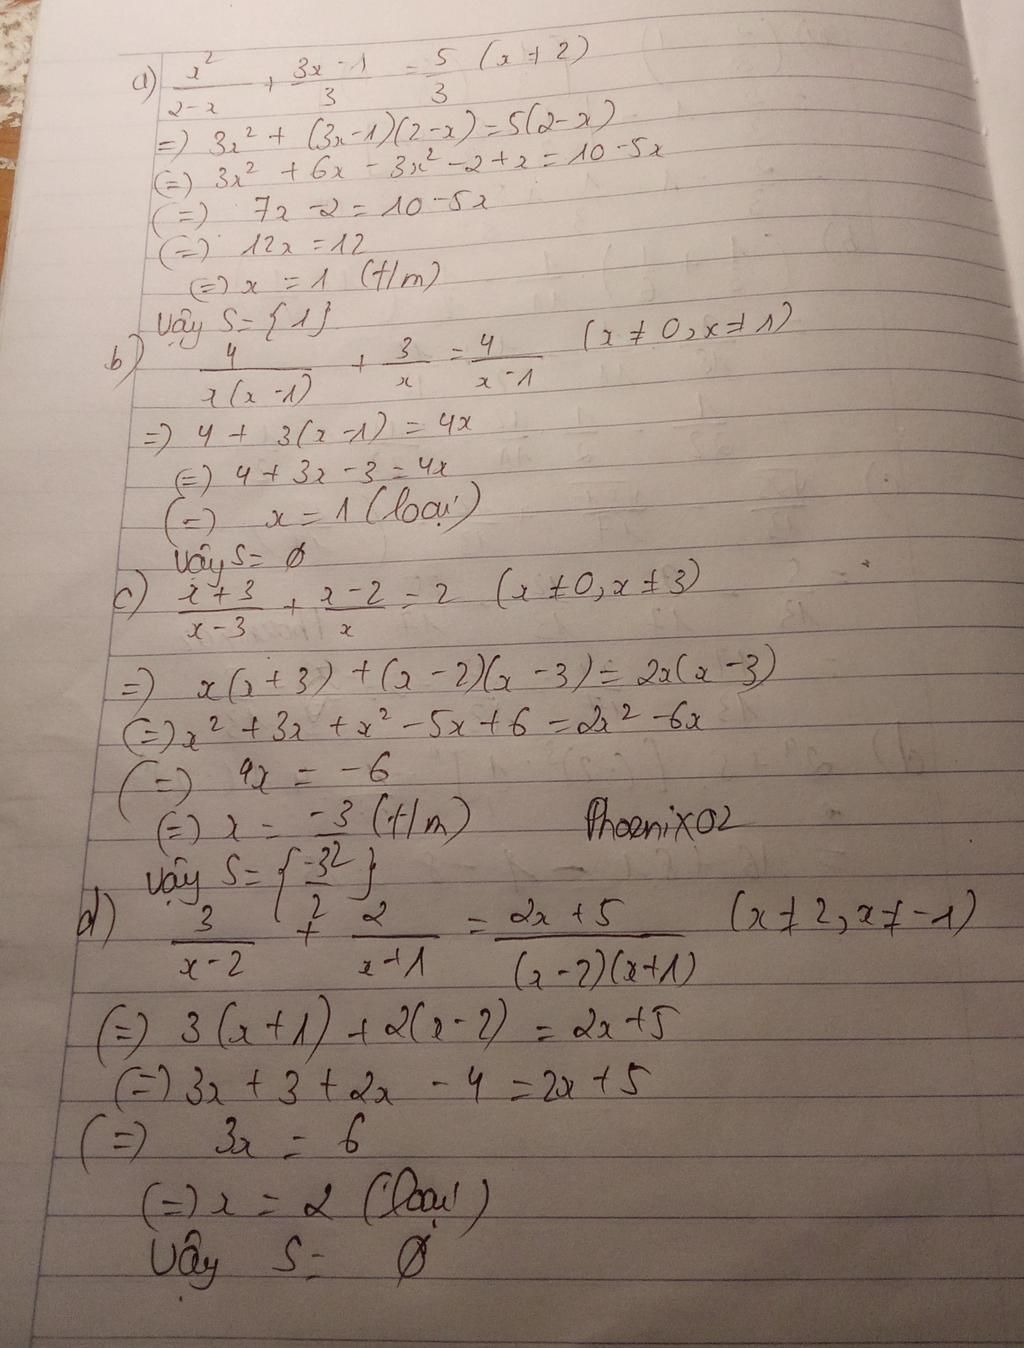 a) x²/(2-x) + (3x-1)/3 = 5/3 (x ≠ 2)
=) 3x² + (3x-1)(2-x) = 5(2-x)
(=) 3x² + 6x - 3x² - 2 + x = 10 - 5x
(=) 7x - 2 = 10 - 5x
(=) 12x = 12
(=) x = 1 (t/m)
Vậy S = {1}
b) 4/(x(x-1)) + 3/x = 4/(x-1) (x ≠ 0, x ≠ 1)
=) 4 + 3(x-1) = 4x
(=) 4 + 3x - 3 = 4x
(=) x = 1 (loại)
Vậy S = ∅
c) (x+3)/(x-3) + (x-2)/x = 2 (x ≠ 0, x ≠ 3)
=) x(x+3) + (x-2)(x-3) = 2x(x-3)
(=) x² + 3x + x² - 5x + 6 = 2x² - 6x
(=) 4x = -6
(=) x = -3/2 (t/m) Phoenix02
Vậy S = {-3/2}
d) 3/(x-2) + 2/(x+1) = (2x+5)/((x-2)(x+1)) (x ≠ 2, x ≠ -1)
(=) 3(x+1) + 2(x-2) = 2x+5
(=) 3x + 3 + 2x - 4 = 2x + 5
(=) 3x = 6
(=) x = 2 (loại)
Vậy S = ∅